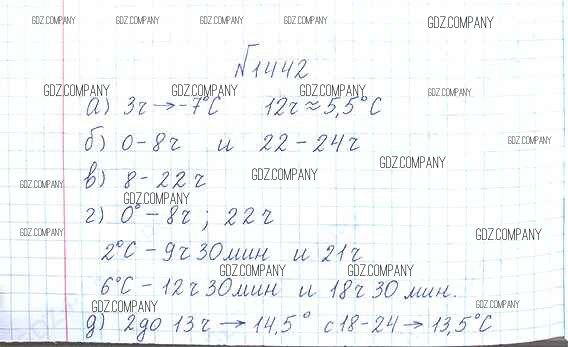 GDZ.COMPANY GDZ.COMPANY GDZ.COMPANY GDZ.COMPANY GDZ.COMPANY
№1442
GDZ.COMPANY GDZ.COMPANY GDZ.COMPANY GDZ.COMPANY
а) 3ч → -7°С 12ч ≈ 5,5°С
б) 0-8ч и 22-24ч
GDZ.COMPANY GDZ.COMPANY
в) 8-22ч
GDZ.COMPANY GDZ.COMPANY
GDZ.COMPANY
г) 0° - 8ч ; 22ч
GDZ.COMPANY GDZ.COMPANY
2°С - 9ч 30мин и 21ч
GDZ.COMPANY GDZ.COMPANY
6°С - 12ч 30мин и 18ч 30 мин.
GDZ.COMPANY GDZ.COMPANY
д) 2до 13ч → 14,5° с 18-24 → 13,5°С